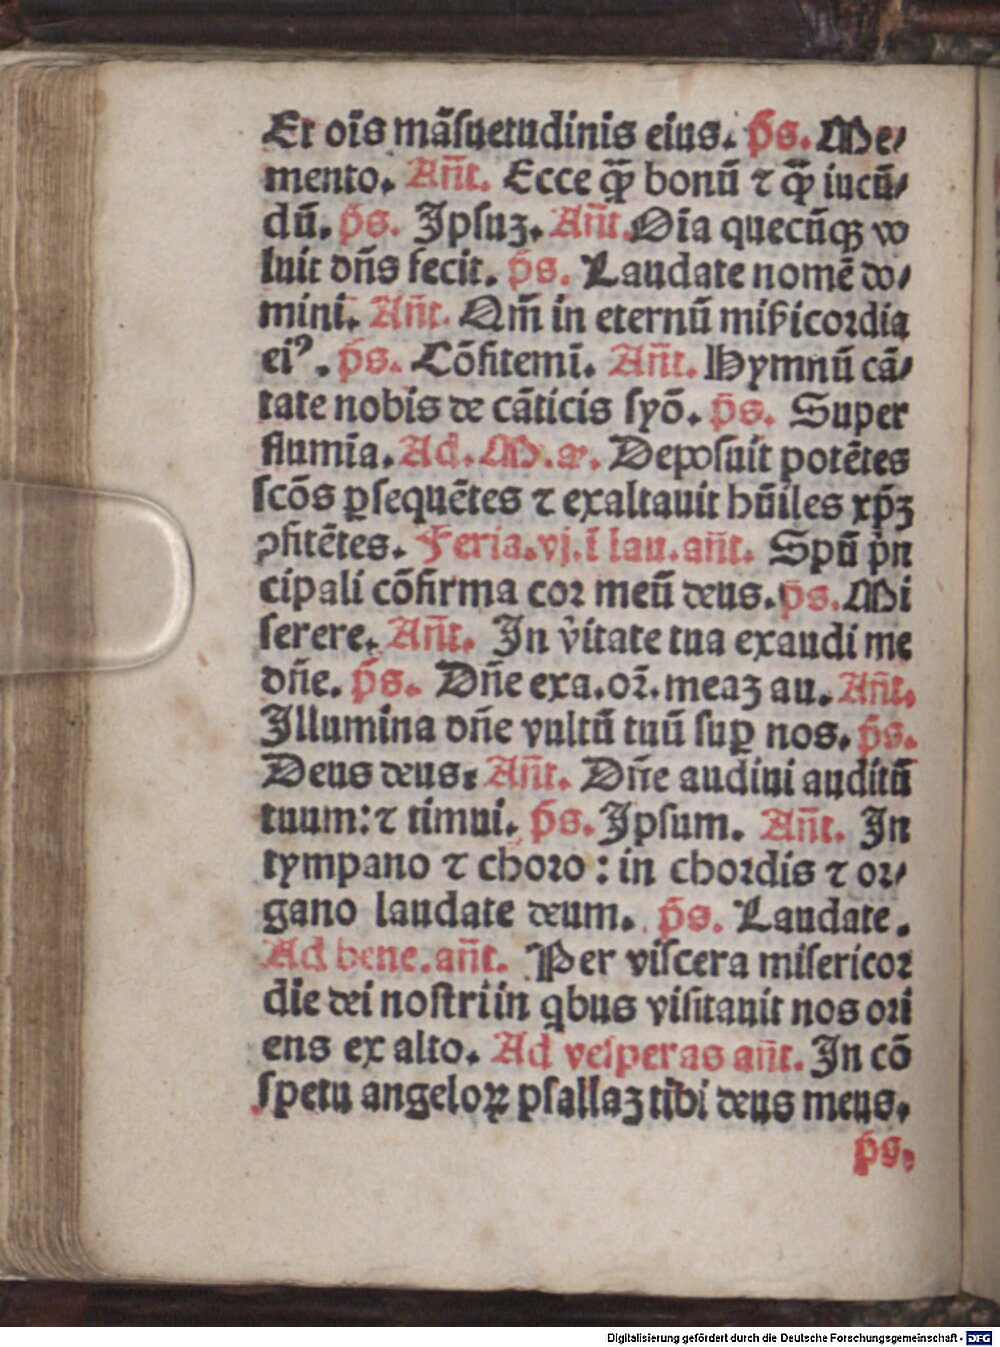 Et oīs māſuetudinis eius. p̄s. Me⸗
mento. Añt. Ecce qͫ bonū ⁊ qͫ iucū⸗
dū. p̄s. Ipſuꝫ. Añt. Oīa quecūqꝫ vo
luit dn̄s fecit. p̄s. Laudate nomē do⸗
mini. Añt. Qm̄ in eternū miẜicoꝛdia
eiꝰ. p̄s. Cōfitemī. Añt. Hymnū cā⸗
tate nobis de cāticis ſyō. p̄s. Super
flumīa. Ad. M. a. Depoſuit potētes
ſcōs ꝑſequētes ⁊ exaltauit hūiles xp̄ꝫ
ꝯfitētes. Feria. vj. ī lau. añt. Spū pͥn
cipali cōfirma coꝛ meū deus. p̄s. Mi
ſerere. Añt. In v̓itate tua exaudi me
dn̄e. p̄s. Dn̄e exa. oꝛ̄. meaꝫ au. Añt.
Illumina dn̄e vultū tuū ſuꝑ nos. p̄s.
Deus deus: Añt. Dn̄e audiui auditū
tuum: ⁊ timui. p̄s. Ipſum. Añt. In
tympano ⁊ choꝛo: in choꝛdis ⁊ oꝛ⸗
gano laudate deum. p̄s. Laudate.
Ad bene. añt. Per viſcera miſericoꝛ
die dei noſtri in qͥbus viſitauit nos oꝛi
ens ex alto. Ad veſperas añt. In cō
ſpetu angeloꝝ pſallaꝫ tibi deus meus.
p̄s.
Digitalisierung gefördert durch die Deutsche Forschungsgemeinschaft - DFG